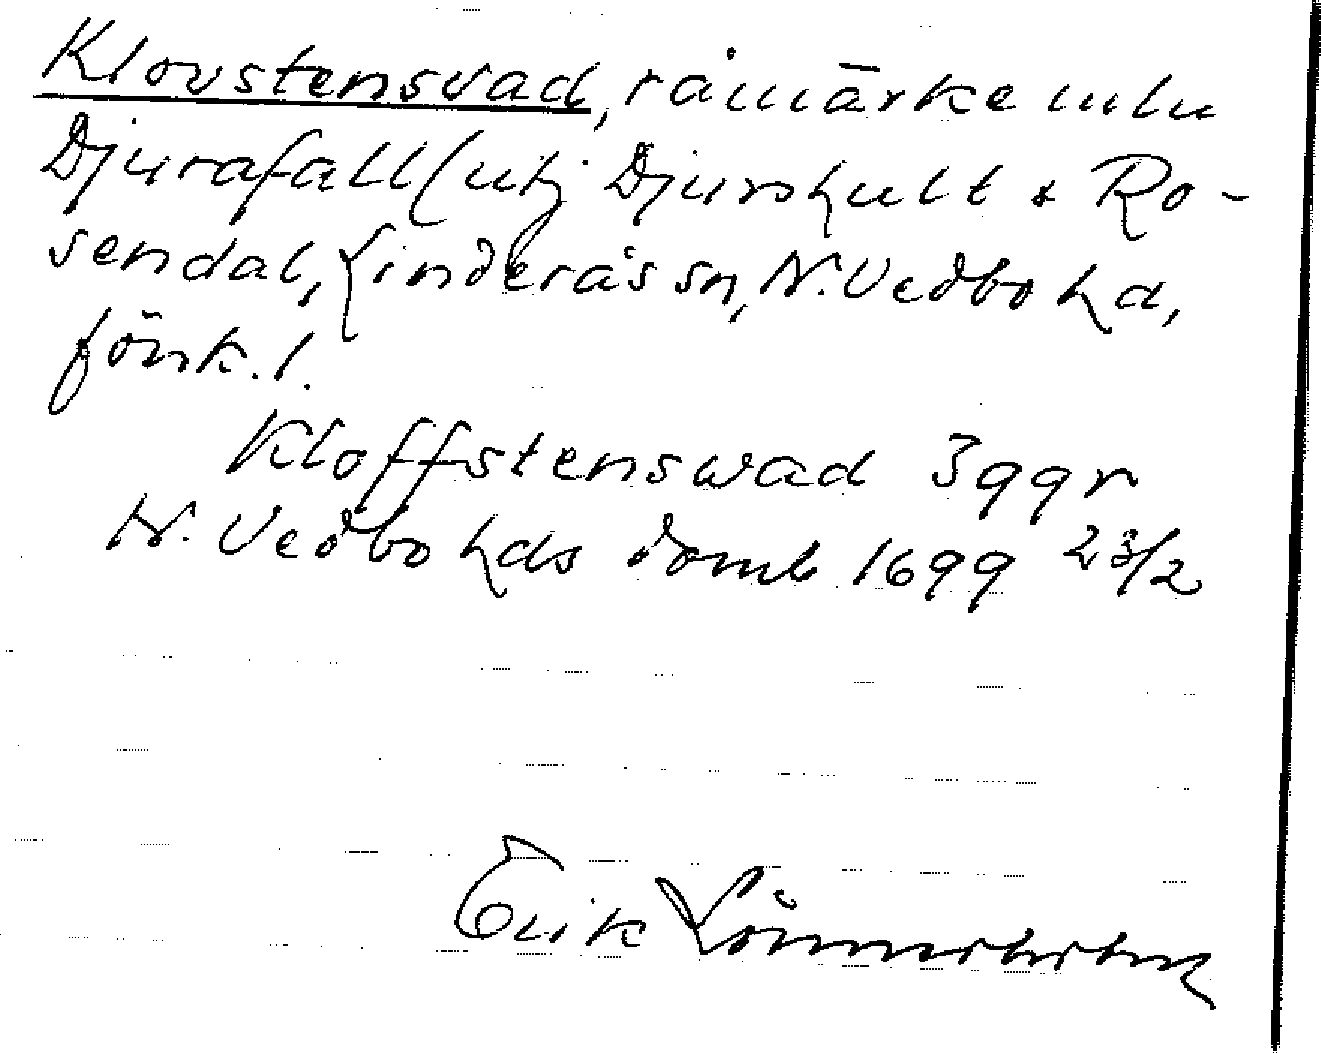 Klovstensvad, råmärke mln
Djurafall (utj Djurshult & Ro-
sendal, Linderås sn, N. Vedbo hd,
Jönk. l.
Kloffstenswad 3 ggr
N. Vedbo hds domb 1699 23/2
Erik